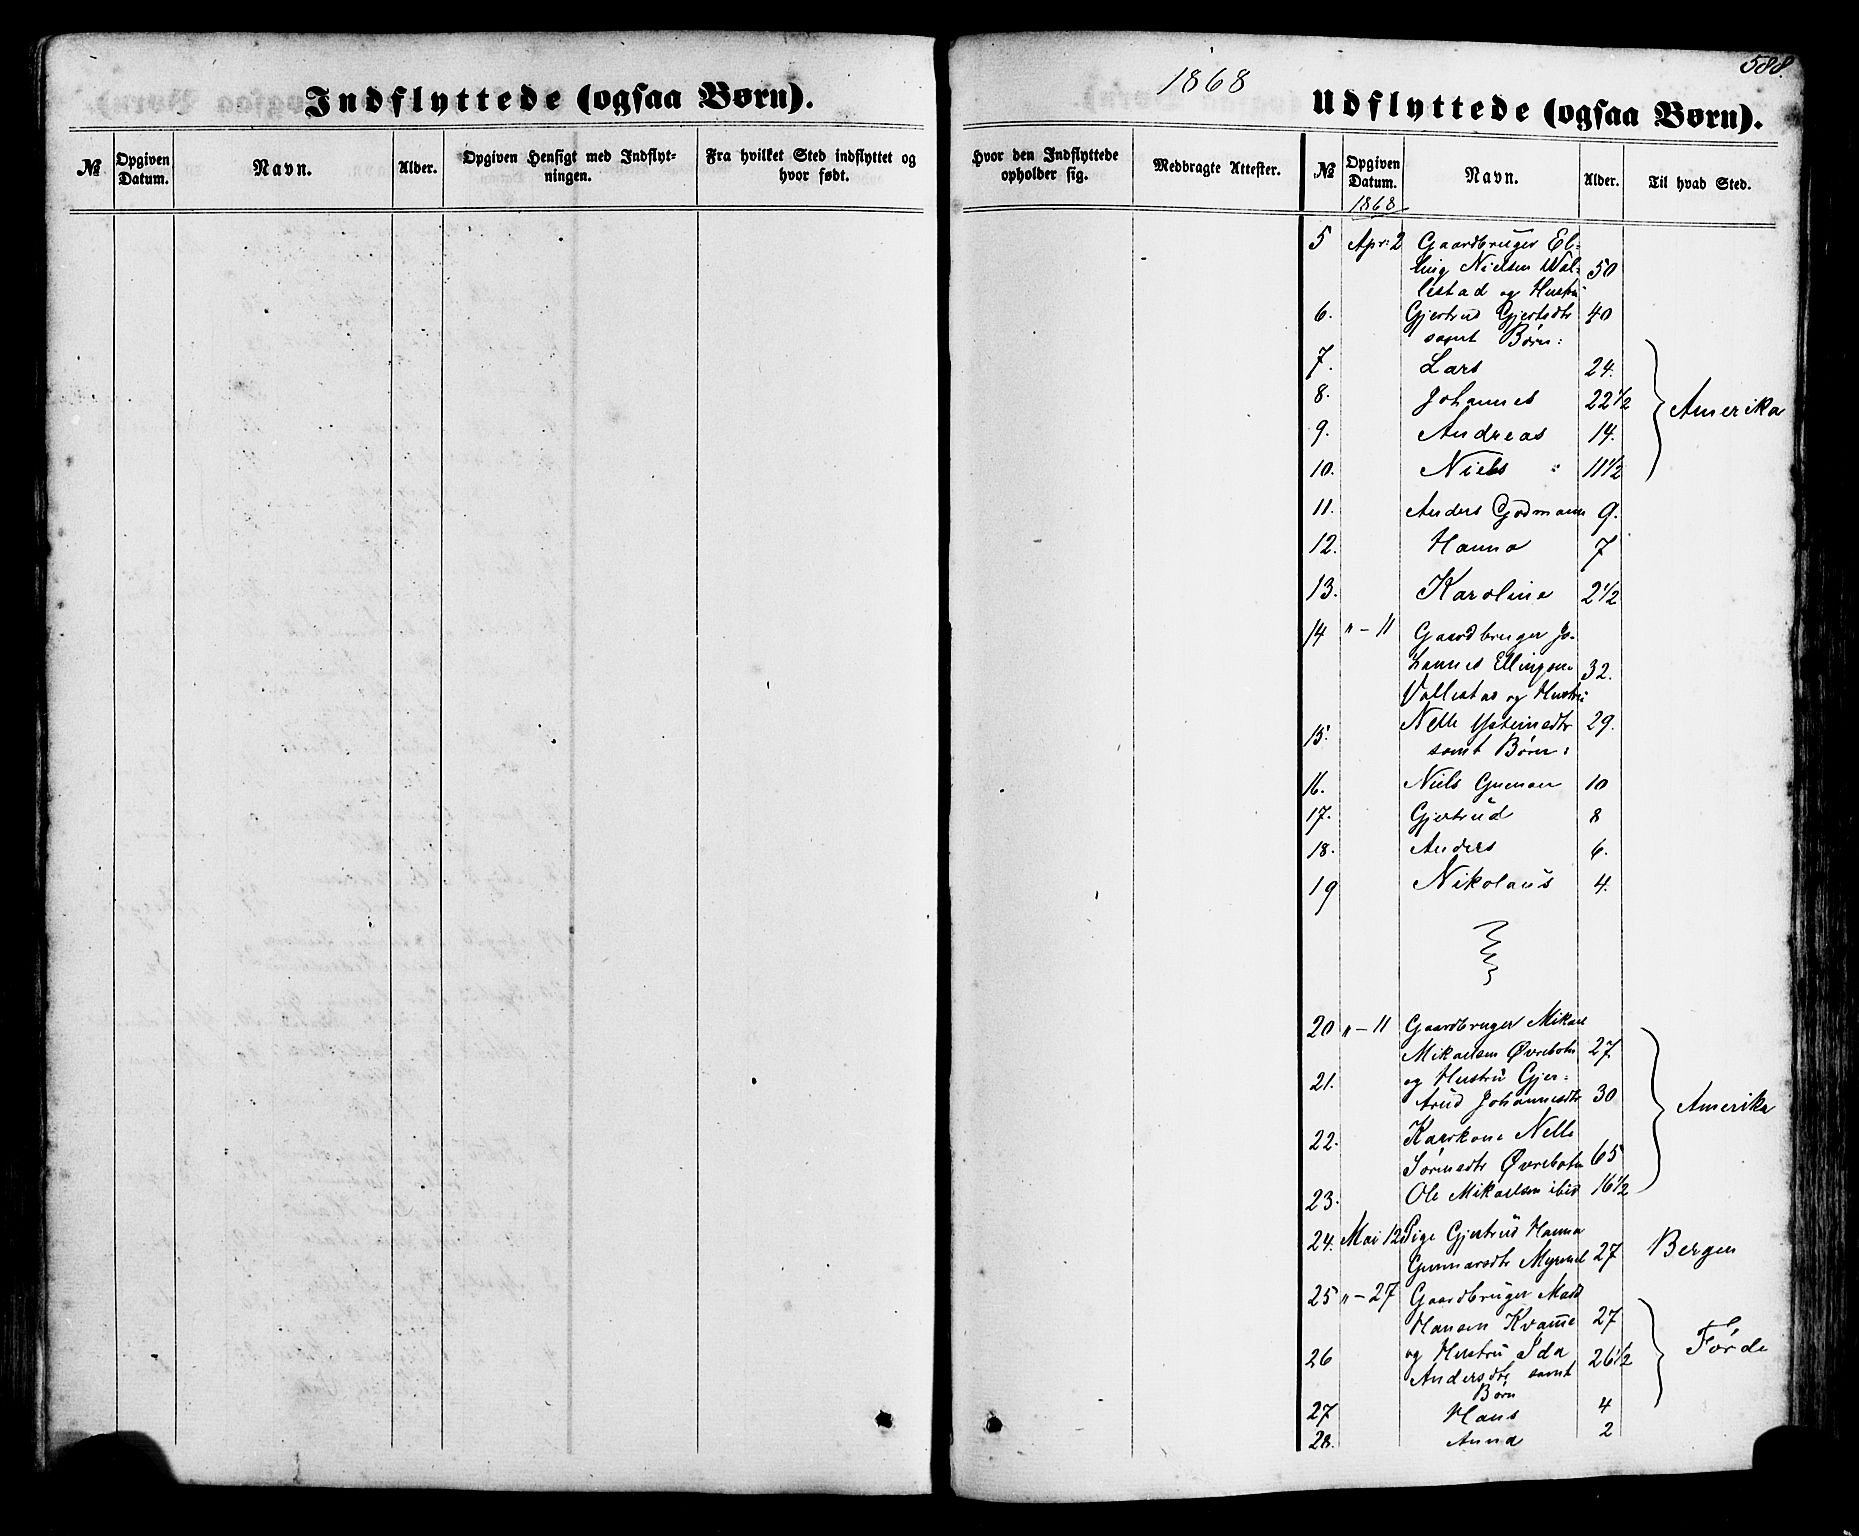 Indflyttede (ogsaa Børn).
№
Opgiven Datum.
Navn.
Alder.
Opgiven Hensigt med Indflyt-
ningen.
Fra hvilket Sted indflyttet og
hvor født.
1868
588.
Udflyttede (ogsaa Børn).
Hvor den Indflyttede
opholder sig.
Medbragte Attester.
№
Opgiven Datum.
Navn.
Alder.
Til hvad Sted.
1868
5 Apr: 2 Gaardbruger El-
ling Nielsen Wal- 50
lestad og Hustru
6. Gjertrud Gjertsdtr 40
samt Børn:
7. Lars 24.
8. Johannes 22 1/2
Amerika
9. Andreas 14.
10. Niels 11 1/2
11. Anders Godmann 9.
12. Hanna 7
13. Karoline 2 1/2
14 " - 11 Gaardbruger Jo-
hannes Ellingsen 32.
Vallestad og Hustru
15. Nelle Ysteinsdtr 29.
samt Børn:
16. Niels 10
17. Gjertrud 8
18. Anders 6.
19 Nikolaus 4.
20 " - 11 Gaardbruger Mikael
Mikaelsen Øvrebotn 27.
21. og Hustru Gjer-
trud Johannesdtr 30
Amerika
22. Kaarkone Nelle
Sørensdtr Øvrebotn 65
23. Ole Mikaelsen ibid 16 1/2
24. Mai 12 Pige Gjertrud Hanna
Gunnarsdtr Myrmel 27 Bergen
25 " - 27 Gaardbruger Mads
Hansen Kvamme 27
26 og Hustru Ida 26 1/2 Førde
Andersdtr samt
Børn
27 Hans 4
28. Anna 2